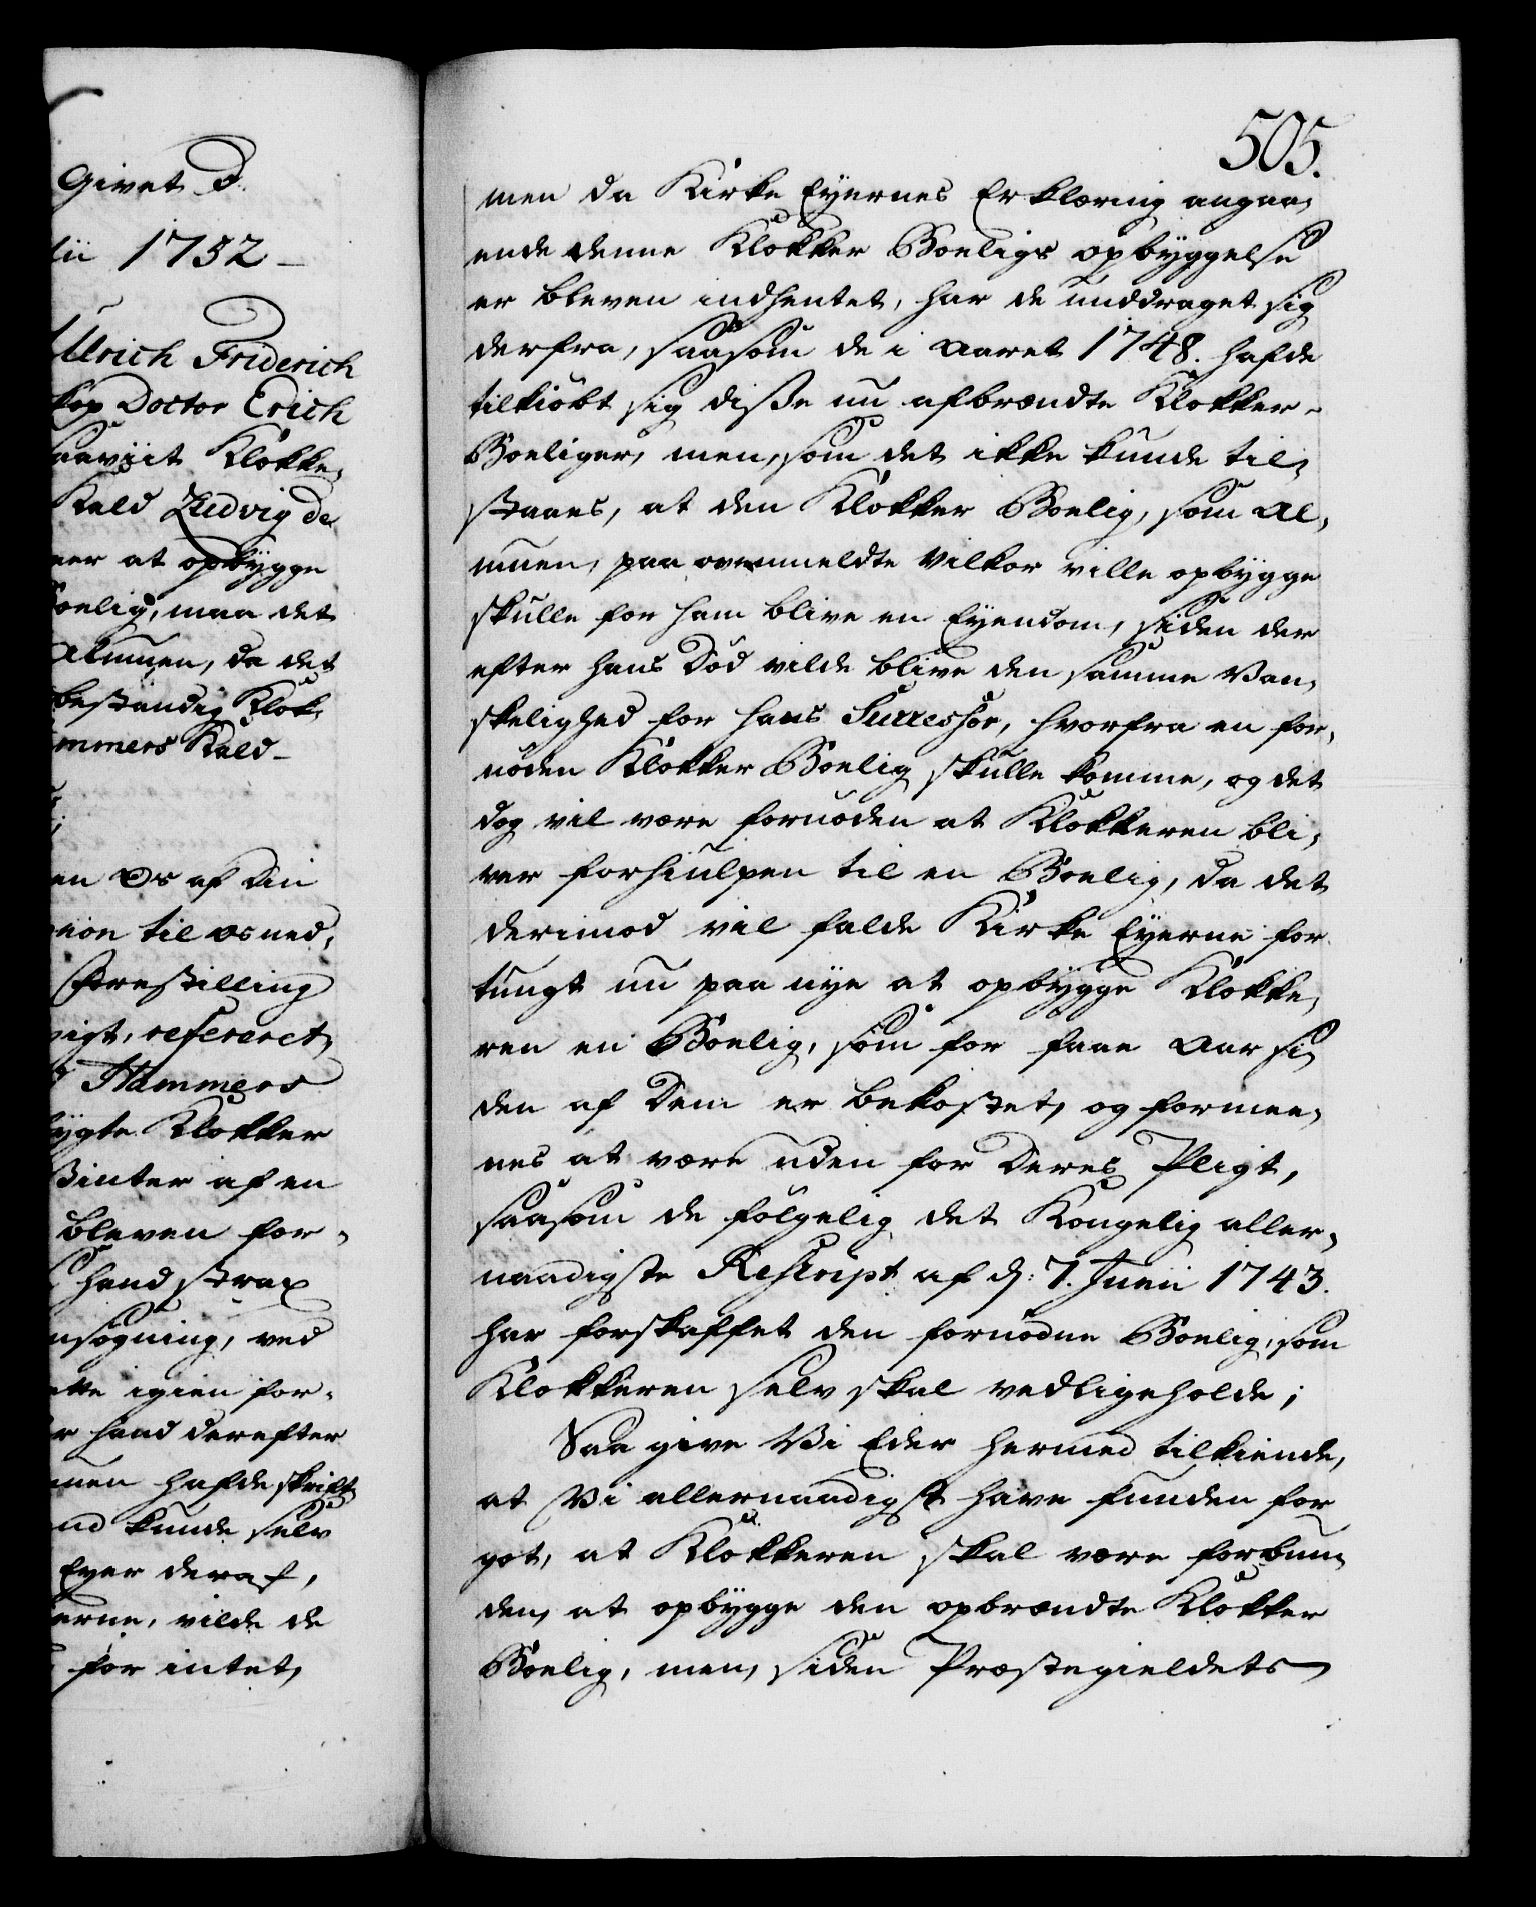 Givet d.
lii 1752 –
Ulrich Friderich
kop Doctor Erich
saaviit Klokke,
Kald Hedvig de
er at opbygge
oelig, maa det
Almuen, da det
bestandig Klok,
ammers Kald –
en Os af Din
nion til os ned,
Forestilling
igt, refereret,
Hammers
ygte Klokker
Winter af en
bleven for,
hand strax
nsøgning, ved
ette igien for,
r hand derefter
men hafde skrift
nd kunde selv
Eyer deraf,
erne, vilde de
for intet,
505.
men da Kirke Eyernes Erklæring angaa,
ende denne Klokker Boeligs opbyggelse
er bleven indhentet, har de unddraget sig
derfra, saasom de i Aaret 1748. hafde
tilkiøbt sig disse nu afbrændte Klokker,
Boeliger, men, som det ikke kunde til,
staaes, at den Klokker Boelig, som Al,
muen, paa ovenmeldte Vilkor ville opbygge
skulle for ham blive en Eyendom, siden der
efter hans Død vilde blive den samme Van,
skelighed for hans Successor, hvorfra en for,
nøden Klokker Boelig skulle komme, og det
dog vil være fornøden at Klokkeren bli,
ver forhiulpen til en Boelig, da det
derimod vil falde Kirke Eyerne for
tungt nu paa nye at opbygge Klokke,
ren en Boelig, som for faae Aar si,
den af Dem er bekostet, og formee,
nes at være uden for Deres Pligt,
saasom de følgelig det Kongelig aller,
naadigste Rescript af d: 7. Junii 1743.
har forskaffet den fornødne Boelig, som
Klokkeren selv skal vedligeholde;
Saa give Vi Eder hermed tilkiende,
at Vi allernaadigst have funden for
got, at Klokkeren skal være forbun,
den, at opbygge den opbrændte Klokker
Boelig, men, siden Præstegieldets